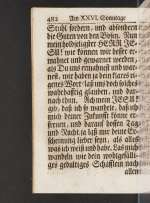 482 Am XXVI. Sonntage
Stuhl fordern, und absondern
die Guten von den Bösen. Nun
mein holdseligster HERR JE-
SU! wir können wir besser er-
mahnet und gewarnet werden,
als Du uns ermahnest und war-
nest. wir haben ja dein kurzes ei-
genes Wort: laß uns doch solches
wahrhafftig glauben, und dar-
nach thun. Ach mein JESU
gib, daß ich so wandele, daß ich
mich deiner Zukunfft könne er-
freuen, und darauf hoffen Tag
und Nacht: ja laß mir deine Er-
scheinung lieber seyn, als alles,
was ich weiß und habe. Laß mich
wandeln wie dein wohlgefälli-
ges geduldiges Schäflein und
allen